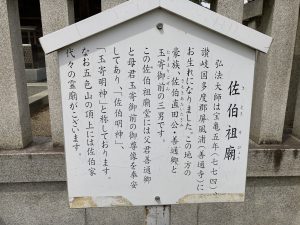 佐伯祖廟
弘法大師は宝亀五年(七七四)
讃岐国多度郡屏風浦(善通寺)に
お生れになりました。この地方の
豪族、佐伯直田公・善通卿と
玉寄御前の三男です。
この佐伯祖廟堂には父君善通卿
と母君玉寄御前の御尊像を奉安
してあり、「佐伯明神」、
「玉寄明神」と称しております。
なお五色山の頂上には佐伯家
代々の霊廟がございます。